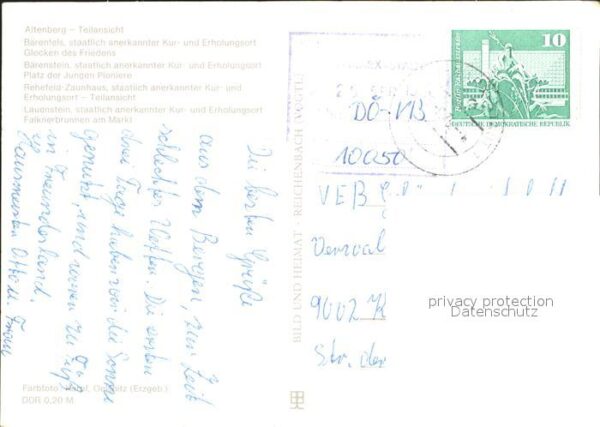 Altenberg – Teilansicht
Bärenfels, staatlich anerkannter Kur- und Erholungsort
Glocken des Friedens
Bärenstein, staatlich anerkannter Kur- und Erholungsort
Platz der Jungen Pioniere
Rehefeld-Zaunhaus, staatlich anerkannter Kur- und
Erholungsort – Teilansicht
Lauenstein, staatlich anerkannter Kur- und Erholungsort
Falknerbrunnen am Markt
Die besten Grüße
aus dem Bergen, zur Zeit
schlechtes Wetter. Die ersten
drei Tage haben wir die Sonne
genutzt, und waren zu Fuß
in Freundesland.
Hausmeister Otto u. Frau
Farbfoto: (Erzgeb.)
DDR 0,20 M
BILD UND HEIMAT · REICHENBACH (VOGTL)
10
DEUTSCHE DEMOKRATISCHE REPUBLIK
10050
VEB
9002 K
Str. der
privacy protection
Datenschutz